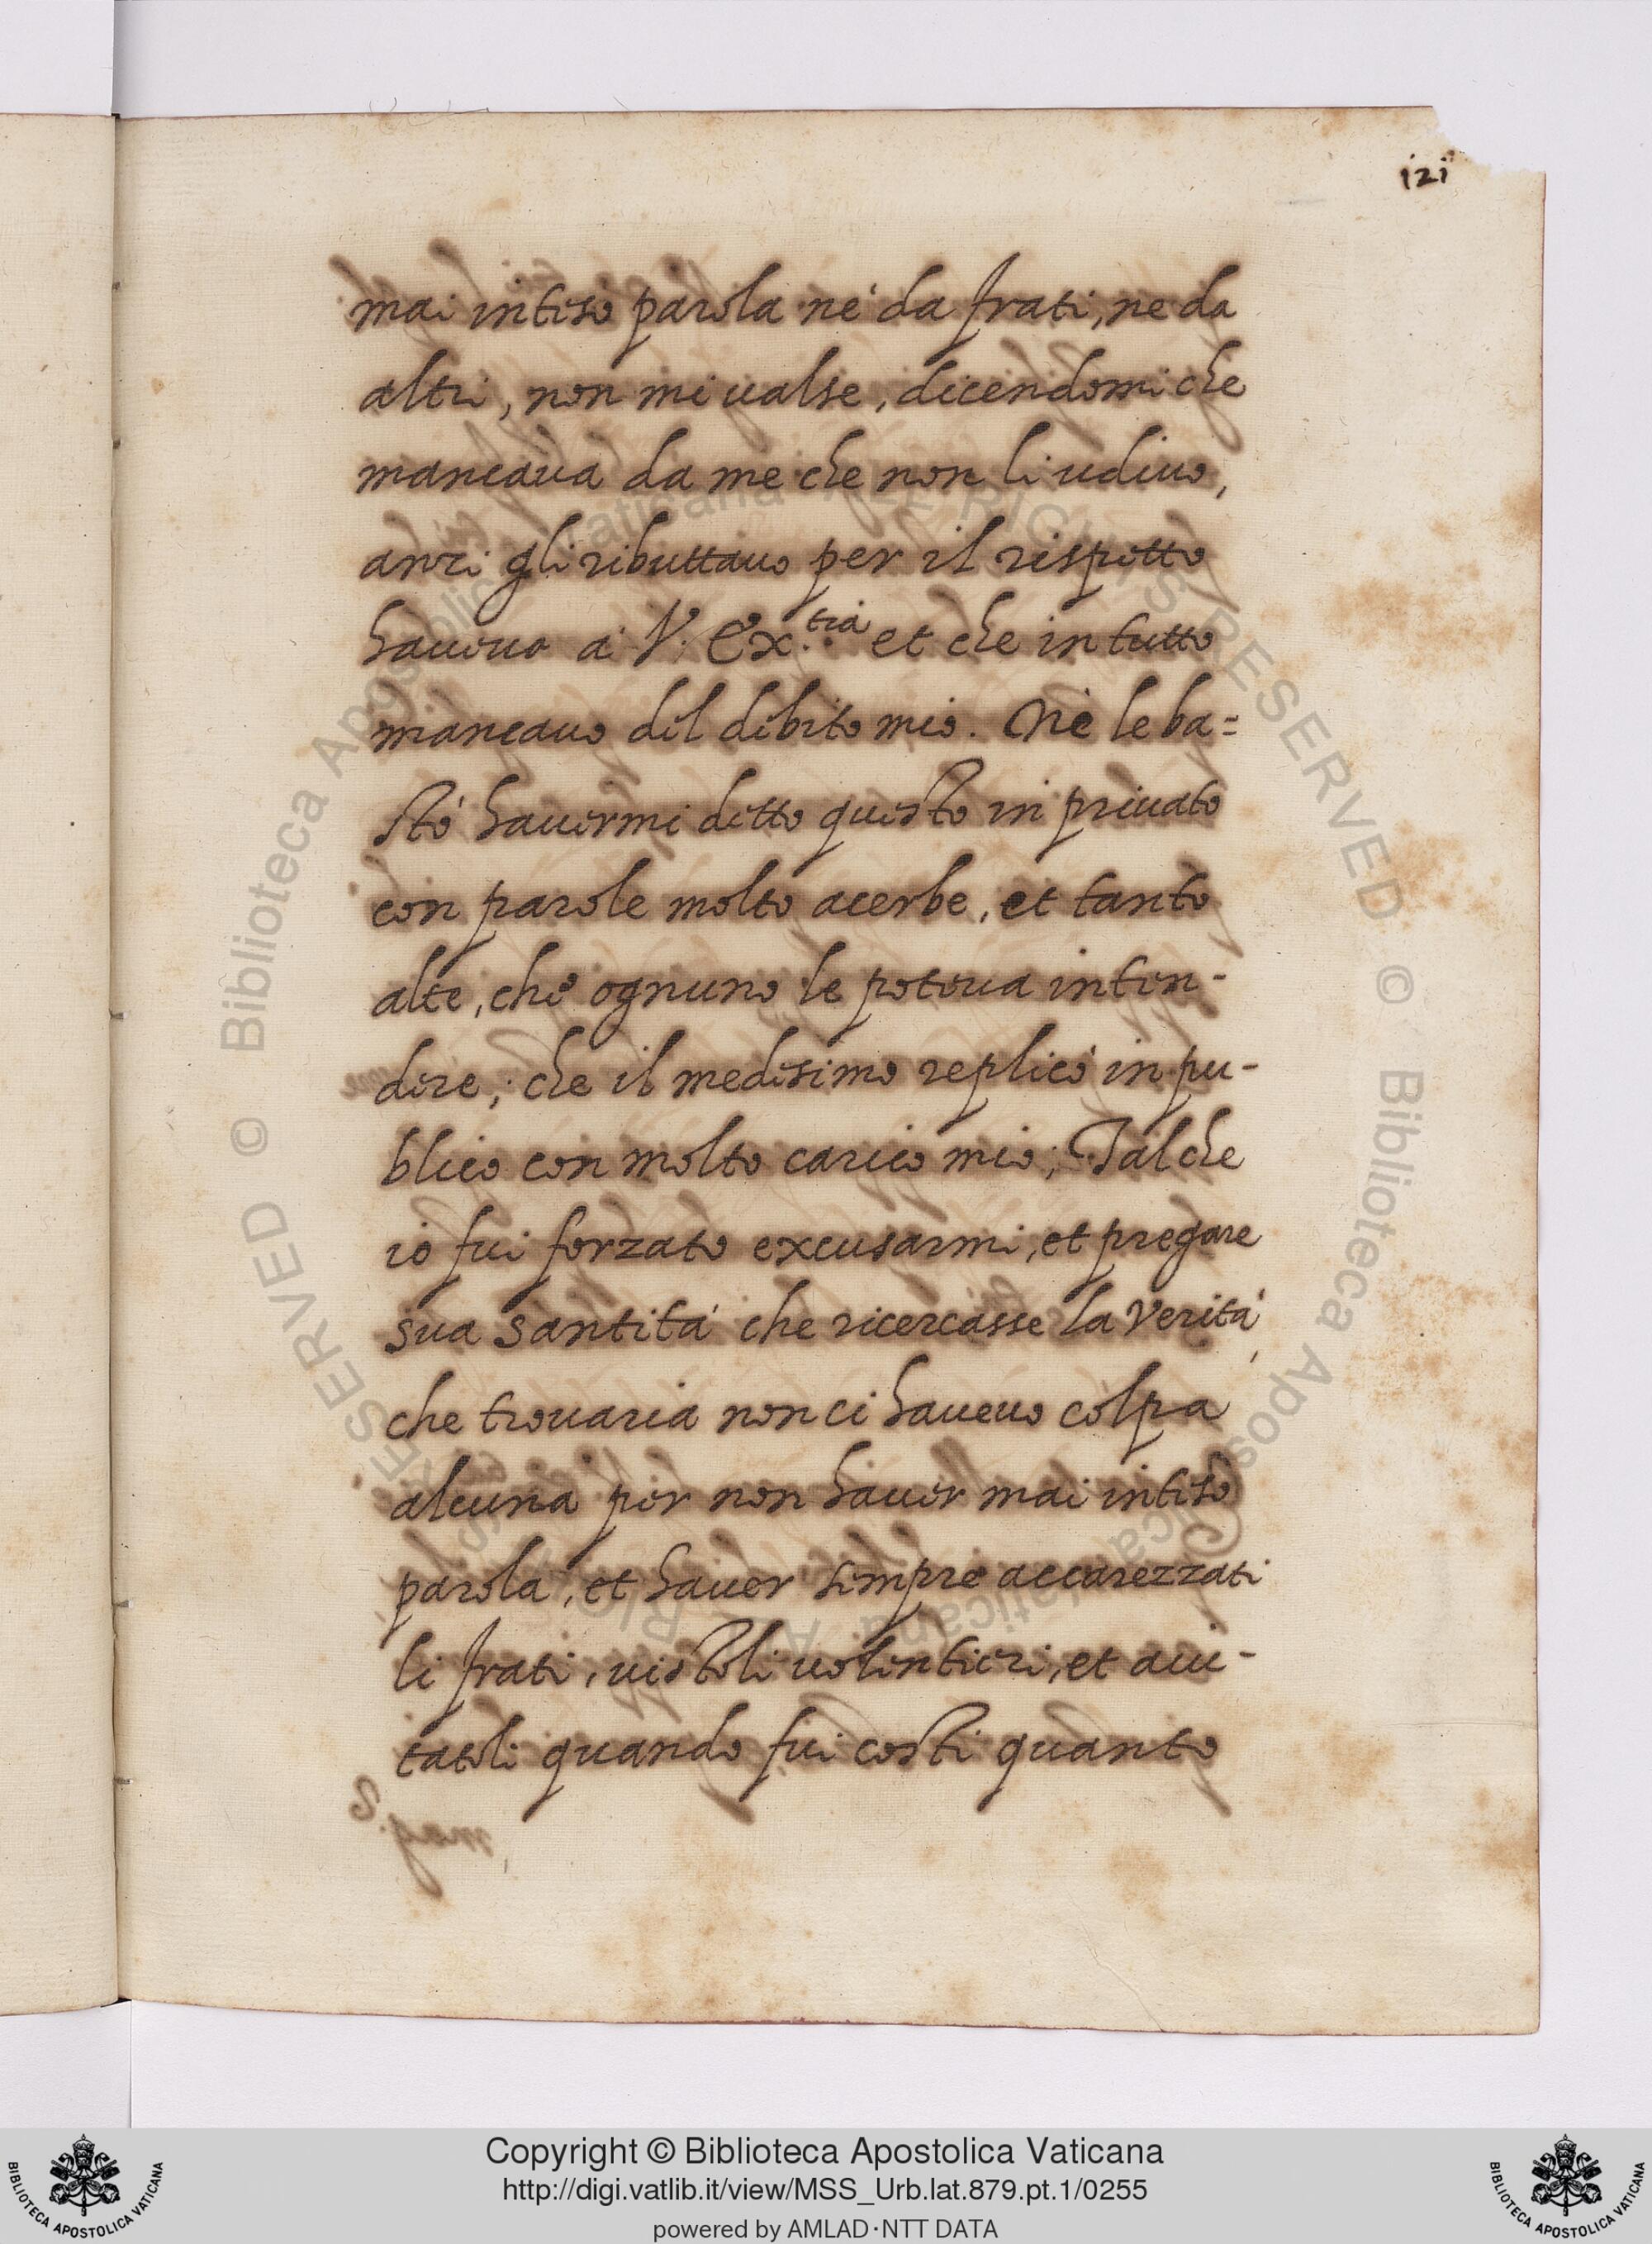 121
mai inteso parola nè da frati, ne da
altri, non mi ualse, dicendomi che
mancaua da me che non li udiuo,
anzi gli ributtauo per il rispetto
haueuo à V. Ex.tia et che in tutto
mancauo del debito mio. Nè le ba=
stò hauermi detto questo in priuato
con parole molto acerbe, et tanto
alte, che ognuno le poteua inten-
dere, che il medesimo replicò in pu-
blico con molto carico mio; Talche
io fui forzato excusarmi, et pregare
sua santità che ricercasse la Verità,
che trouaria non ci haueuo colpa
alcuna per non hauer mai inteso
parola, et hauer sempre accarezzati
li frati, uistoli uolentieri, et aiu-
tatoli quando fui costi quanto
Copyright © Biblioteca Apostolica Vaticana
http://digi.vatlib.it/view/MSS_Urb.lat.879.pt.1/0255
powered by AMLAD·NTT DATA
BIBLIOTECA APOSTOLICA VATICANA
BIBLIOTECA APOSTOLICA VATICANA